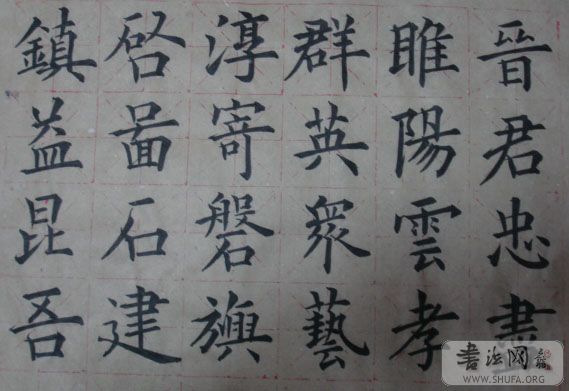 晉君忠
睢陽雲孝
群英衆藝
淳寄磐旗
啓啚石建
鎮益昆吾
書法网
WWW.SHUFA.ORG